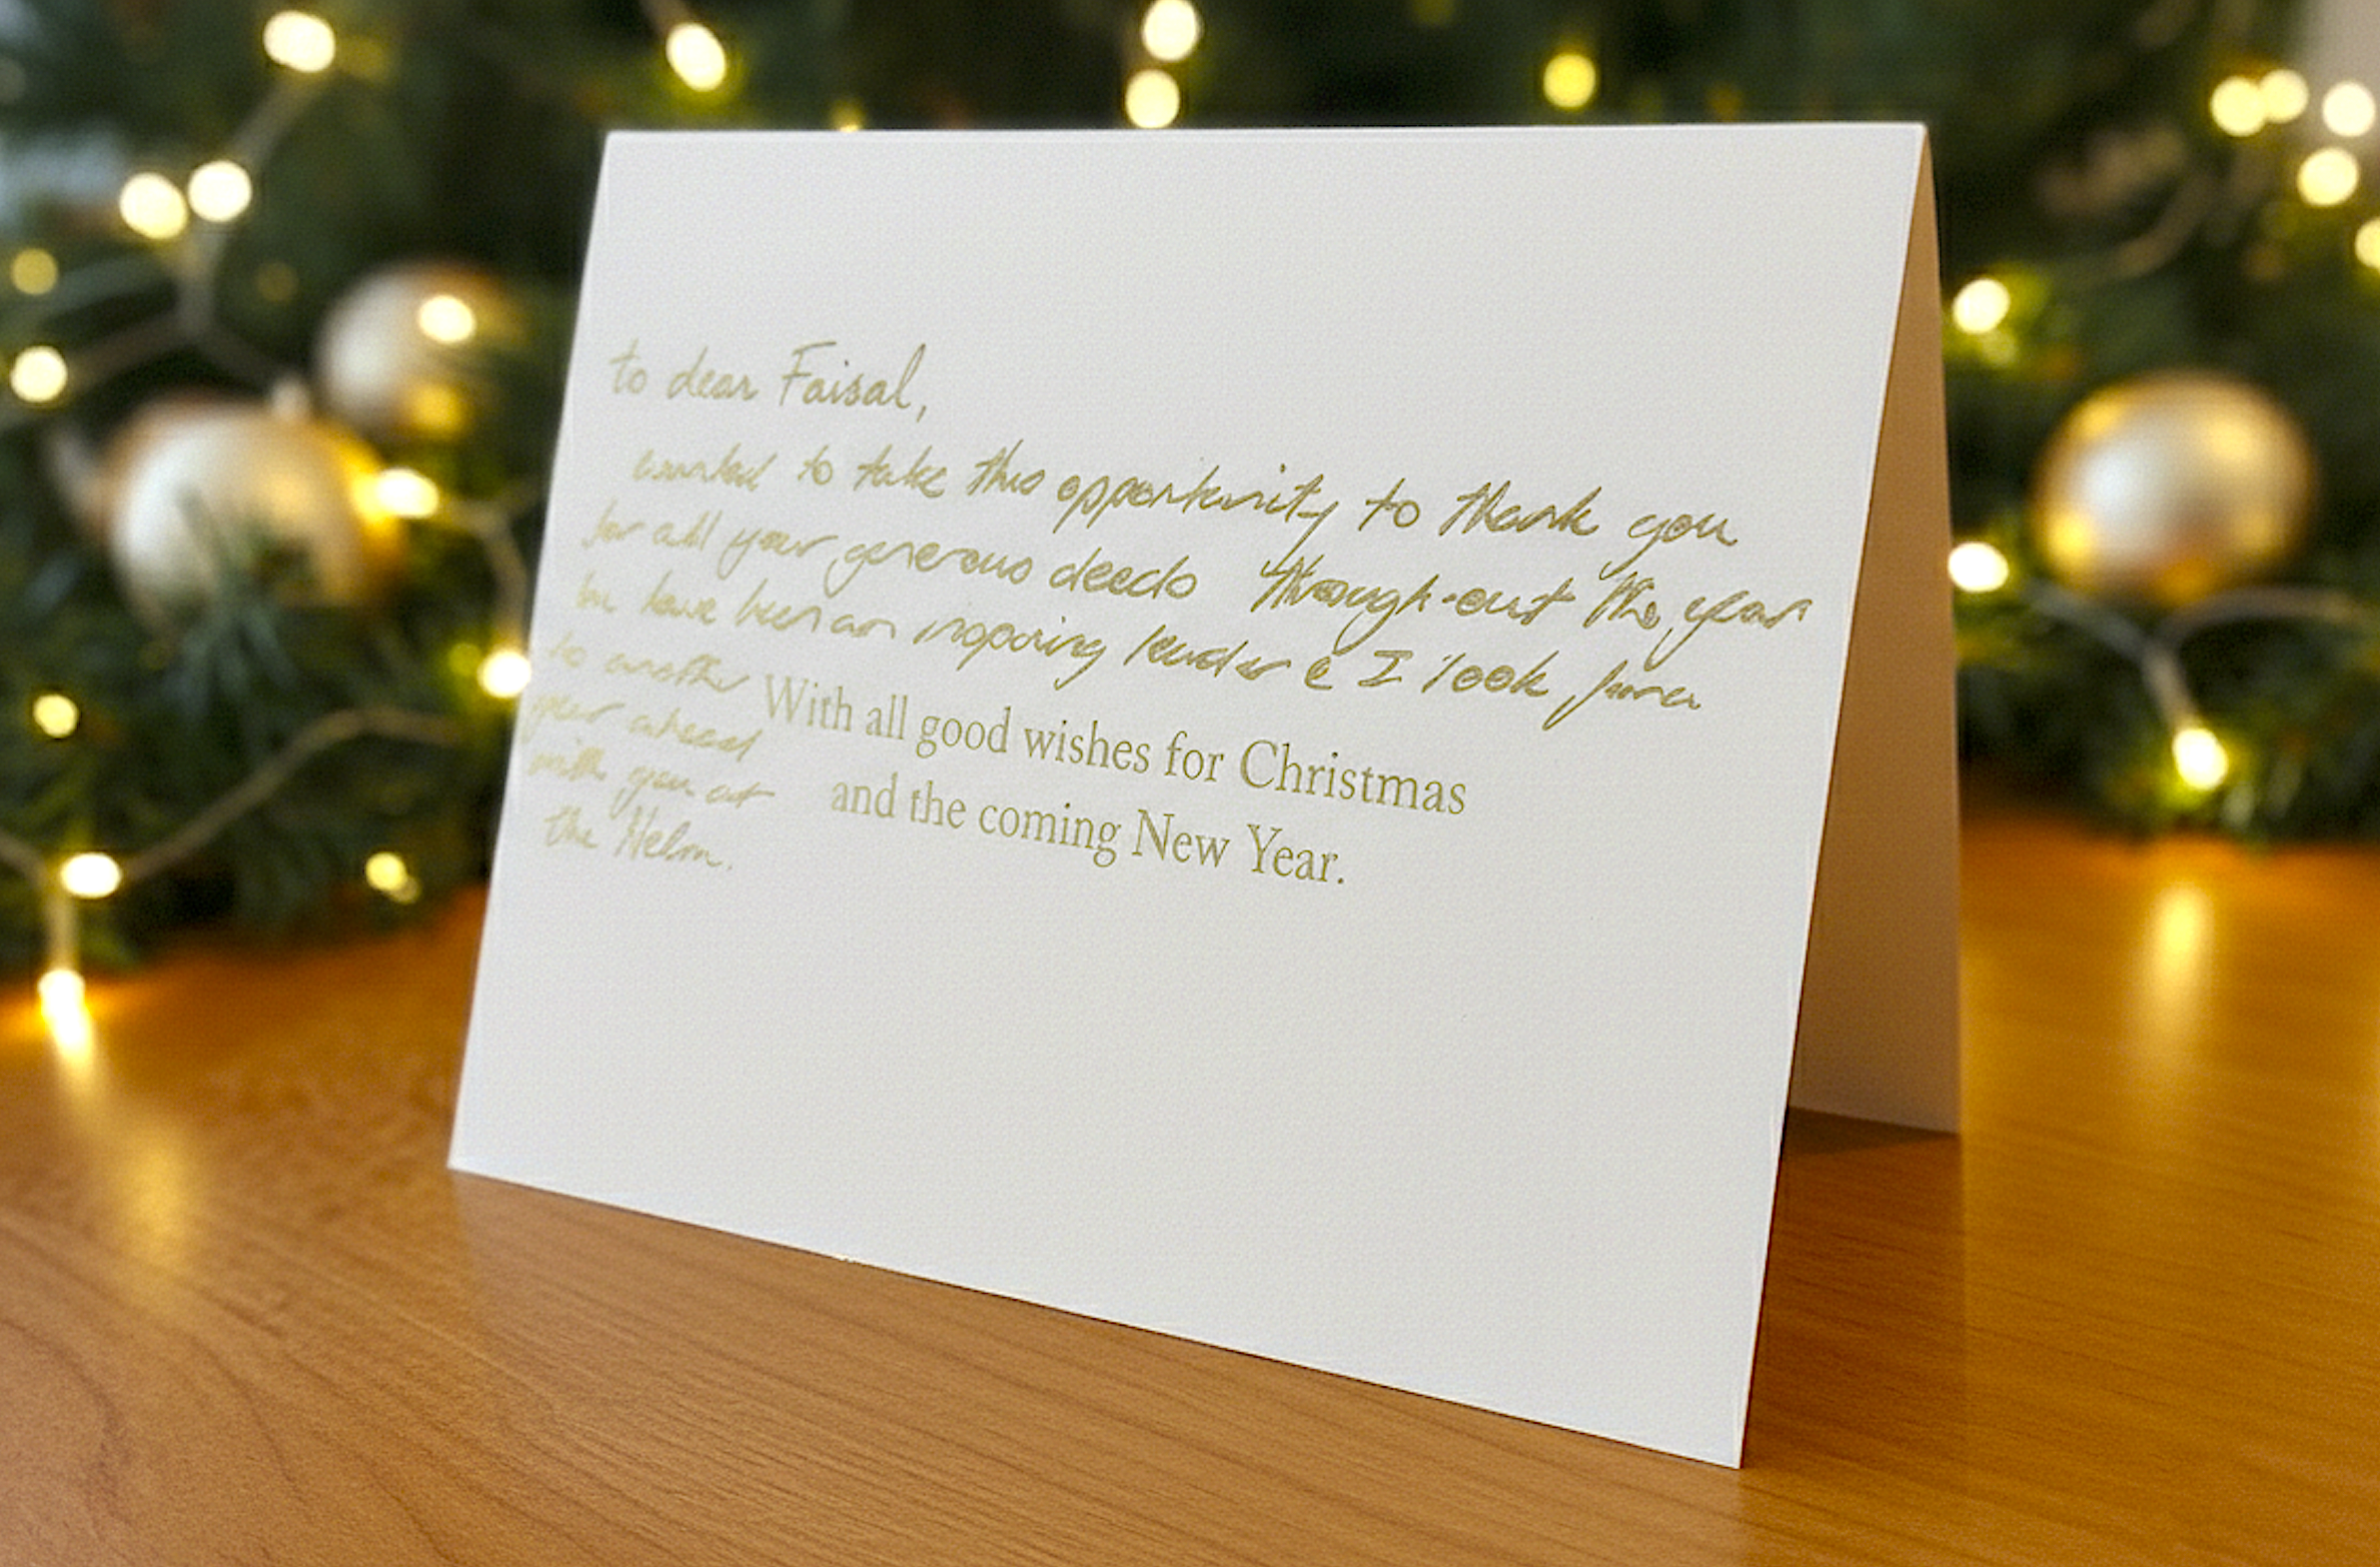 to dear Faisal,
wanted to take this opportunity to thank you
for all your generous deeds through-out the year
have been an inspiring leader & I look
to another
year ahead
with you at
the Helm.
With all good wishes for Christmas
and the coming New Year.